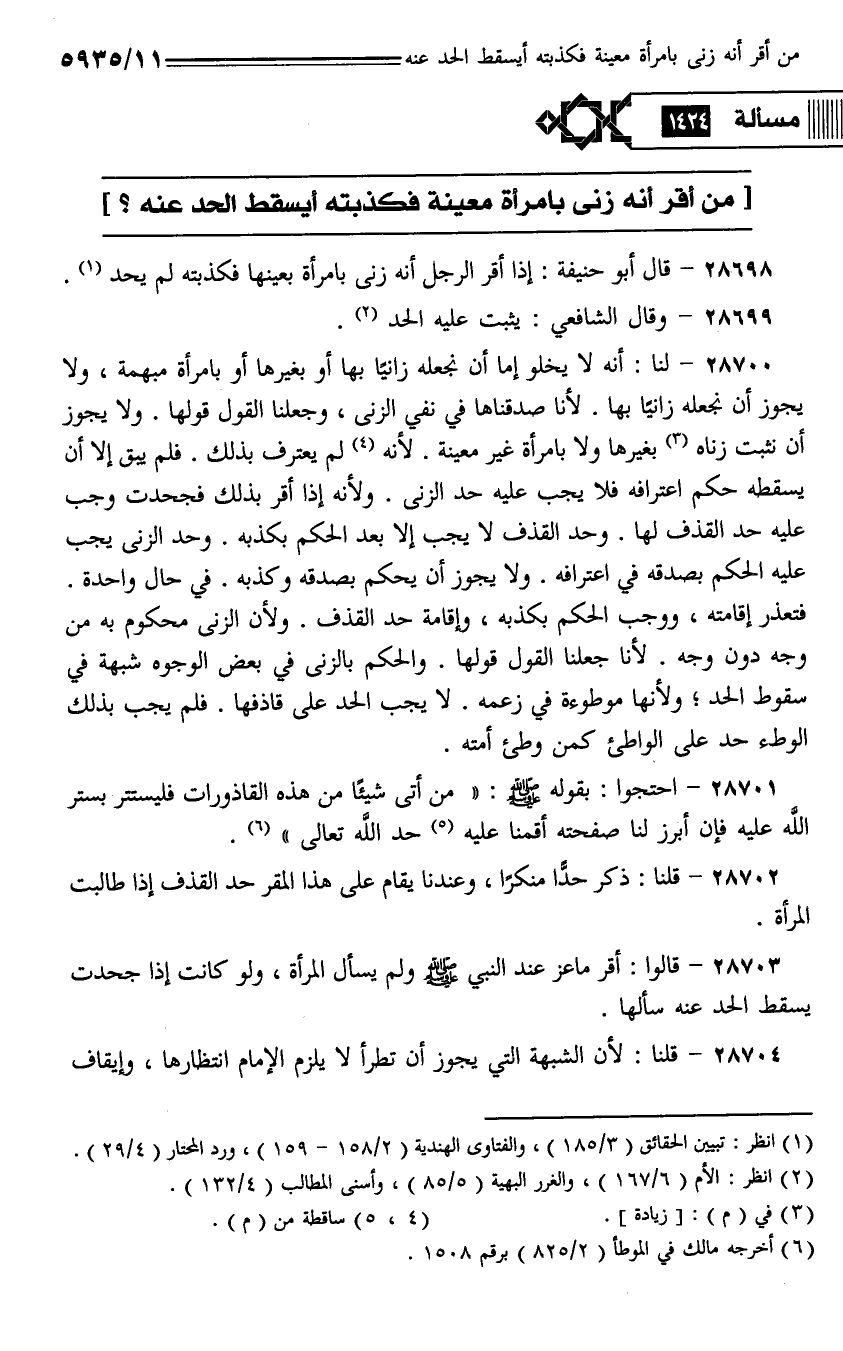 من أقر أنه زنى بامرأة معينة فكذبته أيسقط الحد عنه ٥٩٣٥/١١
مسألة ١٤٢٤
[ من أقر أنه زنى بامرأة معينة فكذبته أيسقط الحد عنه ؟ ]
٢٨٦٩٨ - قال أبو حنيفة : إذا أقر الرجل أنه زنى بامرأة بعينها فكذبته لم يحد (١) .
٢٨٦٩٩ - وقال الشافعي : يثبت عليه الحد (٢) .
٢٨٧٠٠ - لنا : أنه لا يخلو إما أن نجعله زانيًا بها أو بغيرها أو بامرأة مبهمة ، ولا
يجوز أن نجعله زانيًا بها . لأنا صدقناها في نفي الزنى ، وجعلنا القول قولها . ولا يجوز
أن نثبت زناه (٣) بغيرها ولا بامرأة غير معينة . لأنه (٤) لم يعترف بذلك . فلم يبق إلا أن
يسقطه حكم اعترافه فلا يجب عليه حد الزنى . ولأنه إذا أقر بذلك فجحدت وجب
عليه حد القذف لها . وحد القذف لا يجب إلا بعد الحكم بكذبه . وحد الزنى يجب
عليه الحكم بصدقه في اعترافه . ولا يجوز أن يحكم بصدقه وكذبه . في حال واحدة .
فتعذر إقامته ، ووجب الحكم بكذبه ، وإقامة حد القذف . ولأن الزنى محكوم به من
وجه دون وجه . لأنا جعلنا القول قولها . والحكم بالزنى في بعض الوجوه شبهة في
سقوط الحد ؛ ولأنها موطوءة في زعمه . لا يجب الحد على قاذفها . فلم يجب بذلك
الوطء حد على الواطئ كمن وطئ أمته .
٢٨٧٠١ - احتجوا : بقوله ﷺ : « من أتى شيئًا من هذه القاذورات فليستتر بستر
اللَّه عليه فإن أبرز لنا صفحته أقمنا عليه (٥) حد اللَّه تعالى » (٦) .
٢٨٧٠٢ - قلنا : ذكر حدًّا منكرًا ، وعندنا يقام على هذا المقر حد القذف إذا طالبت
المرأة .
٢٨٧٠٣ - قالوا : أقر ماعز عند النبي ﷺ ولم يسأل المرأة ، ولو كانت إذا جحدت
يسقط الحد عنه سألها .
٢٨٧٠٤ - قلنا : لأن الشبهة التي يجوز أن تطرأ لا يلزم الإمام انتظارها ، وإيقاف
(١) انظر : تبيين الحقائق ( ١٨٥/٣ ) ، والفتاوى الهندية ( ١٥٨/٢ - ١٥٩ ) ، ورد المحتار ( ٢٩/٤ ) .
(٢) انظر : الأم ( ١٦٧/٦ ) ، والغرر البهية ( ٨٥/٥ ) ، وأسنى المطالب ( ١٣٢/٤ ) .
(٣) في ( م ) : [ زيادة ] . (٤ ، ٥) ساقطة من ( م ) .
(٦) أخرجه مالك في الموطأ ( ٨٢٥/٢ ) برقم ١٥٠٨ .